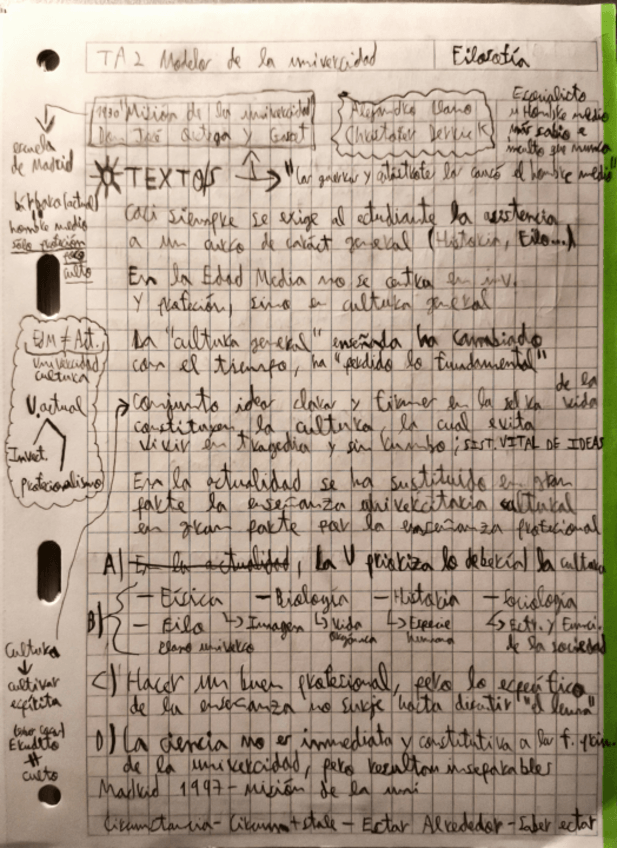 TA2 Modelos de la univercidad
Filosofía
1930 "Misión de la univercidad"
De José Ortega y Gaset
Alejandro Llano
Christofer Derrick
Hombre medio
más sabio e
inculto que nunca
escuela
de Madrid
bárbaro (actual)
hombre medio
sólo profesión
poco
culto
TEXTO/S
Casi siempre se exige al estudiante la asistencia
a un curso de caráct general (Historia, Filo...)
En la Edad Media no se centra en inv.
y profesión, sino en cultura general
La "cultura general" enseñada ha cambiado
con el tiempo, ha "perdido lo fundamental"
EdM ≠ Act.
Univercidad
cultura
V. actual
Invest.
profecionalismo
Conjunto ideas claras y firmes en la selva de la vida
constituyen la cultura, la cual evita
vivir en tragedia y sin rumbo; SIST. VITAL DE IDEAS
En la actualidad se ha sustituido en gran
parte la enseñanza univercitaria cultural
en gran parte por la enseñanza profecional
A) En la actualidad, la V prioriza lo debería la cultura
B) - Física - Biología - Historia - Sociología
- Filo ↳ Imagen ↳ Vida ↳ Especie ↳ Estr. y Funci.
plano universo orgánica humana de la sociedad
C) Hacer un buen profecional, pero lo específico
de la enseñanza no surje hasta discutir "el lema"
D) La ciencia no es inmediata y constitutiva a las f. prin.
de la univercidad, pero resultan inseparables
Madrid 1997 - Misión de la uni
Circunstancia - Circum + stale - Estar Alrededor - Saber estar
Cultura
↓
cultivar
espíritu
Erudito
≠
culto